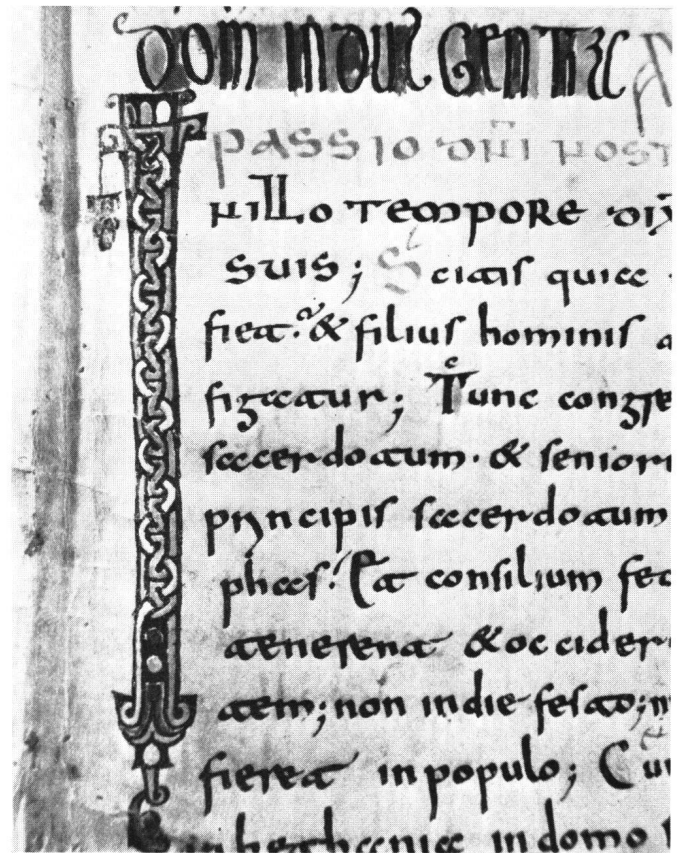 DOM INDULGENTIE
PASSIO DÑI NOST
IN ILLO TEMPORE DIX
SUIS; Scitis quia
fiet. & filius hominis a
figatur; Tunc congre
sacerdotum. & seniori
principis sacerdotum
phas. Et consilium fec
tenerent & occider
tem; non in die festo; n
fieret in populo; Cu
in bethania in domo